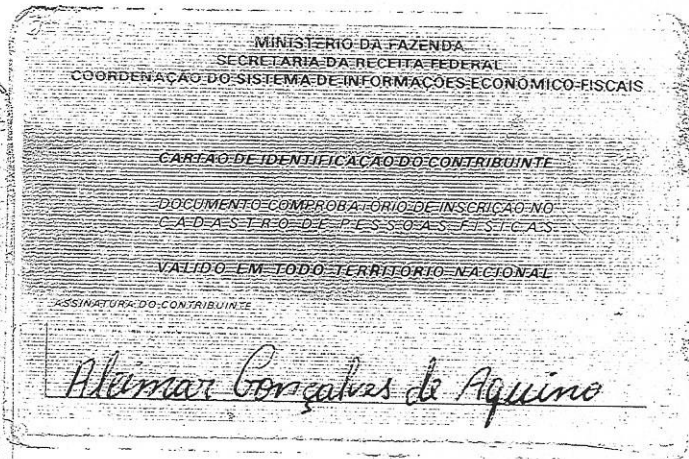 MINISTÉRIO DA FAZENDA
SECRETARIA DA RECEITA FEDERAL
COORDENAÇÃO DO SISTEMA DE INFORMAÇÕES ECONÔMICO-FISCAIS
CARTÃO DE IDENTIFICAÇÃO DO CONTRIBUINTE
DOCUMENTO COMPROBATÓRIO DE INSCRIÇÃO NO
CADASTRO DE PESSOAS FÍSICAS
VÁLIDO EM TODO TERRITÓRIO NACIONAL
ASSINATURA DO CONTRIBUINTE
Alamar Gonçalves de Aquino